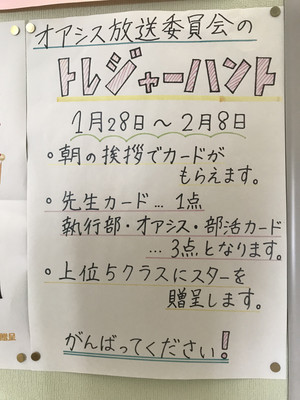 オアシス放送委員会の
トレジャーハント
1月28日～2月8日
・朝の挨拶でカードが
もらえます。
・先生カード…1点
執行部・オアシス・部活カード
…3点となります。
・上位5クラスにスターを
贈呈します。
がんばってください!